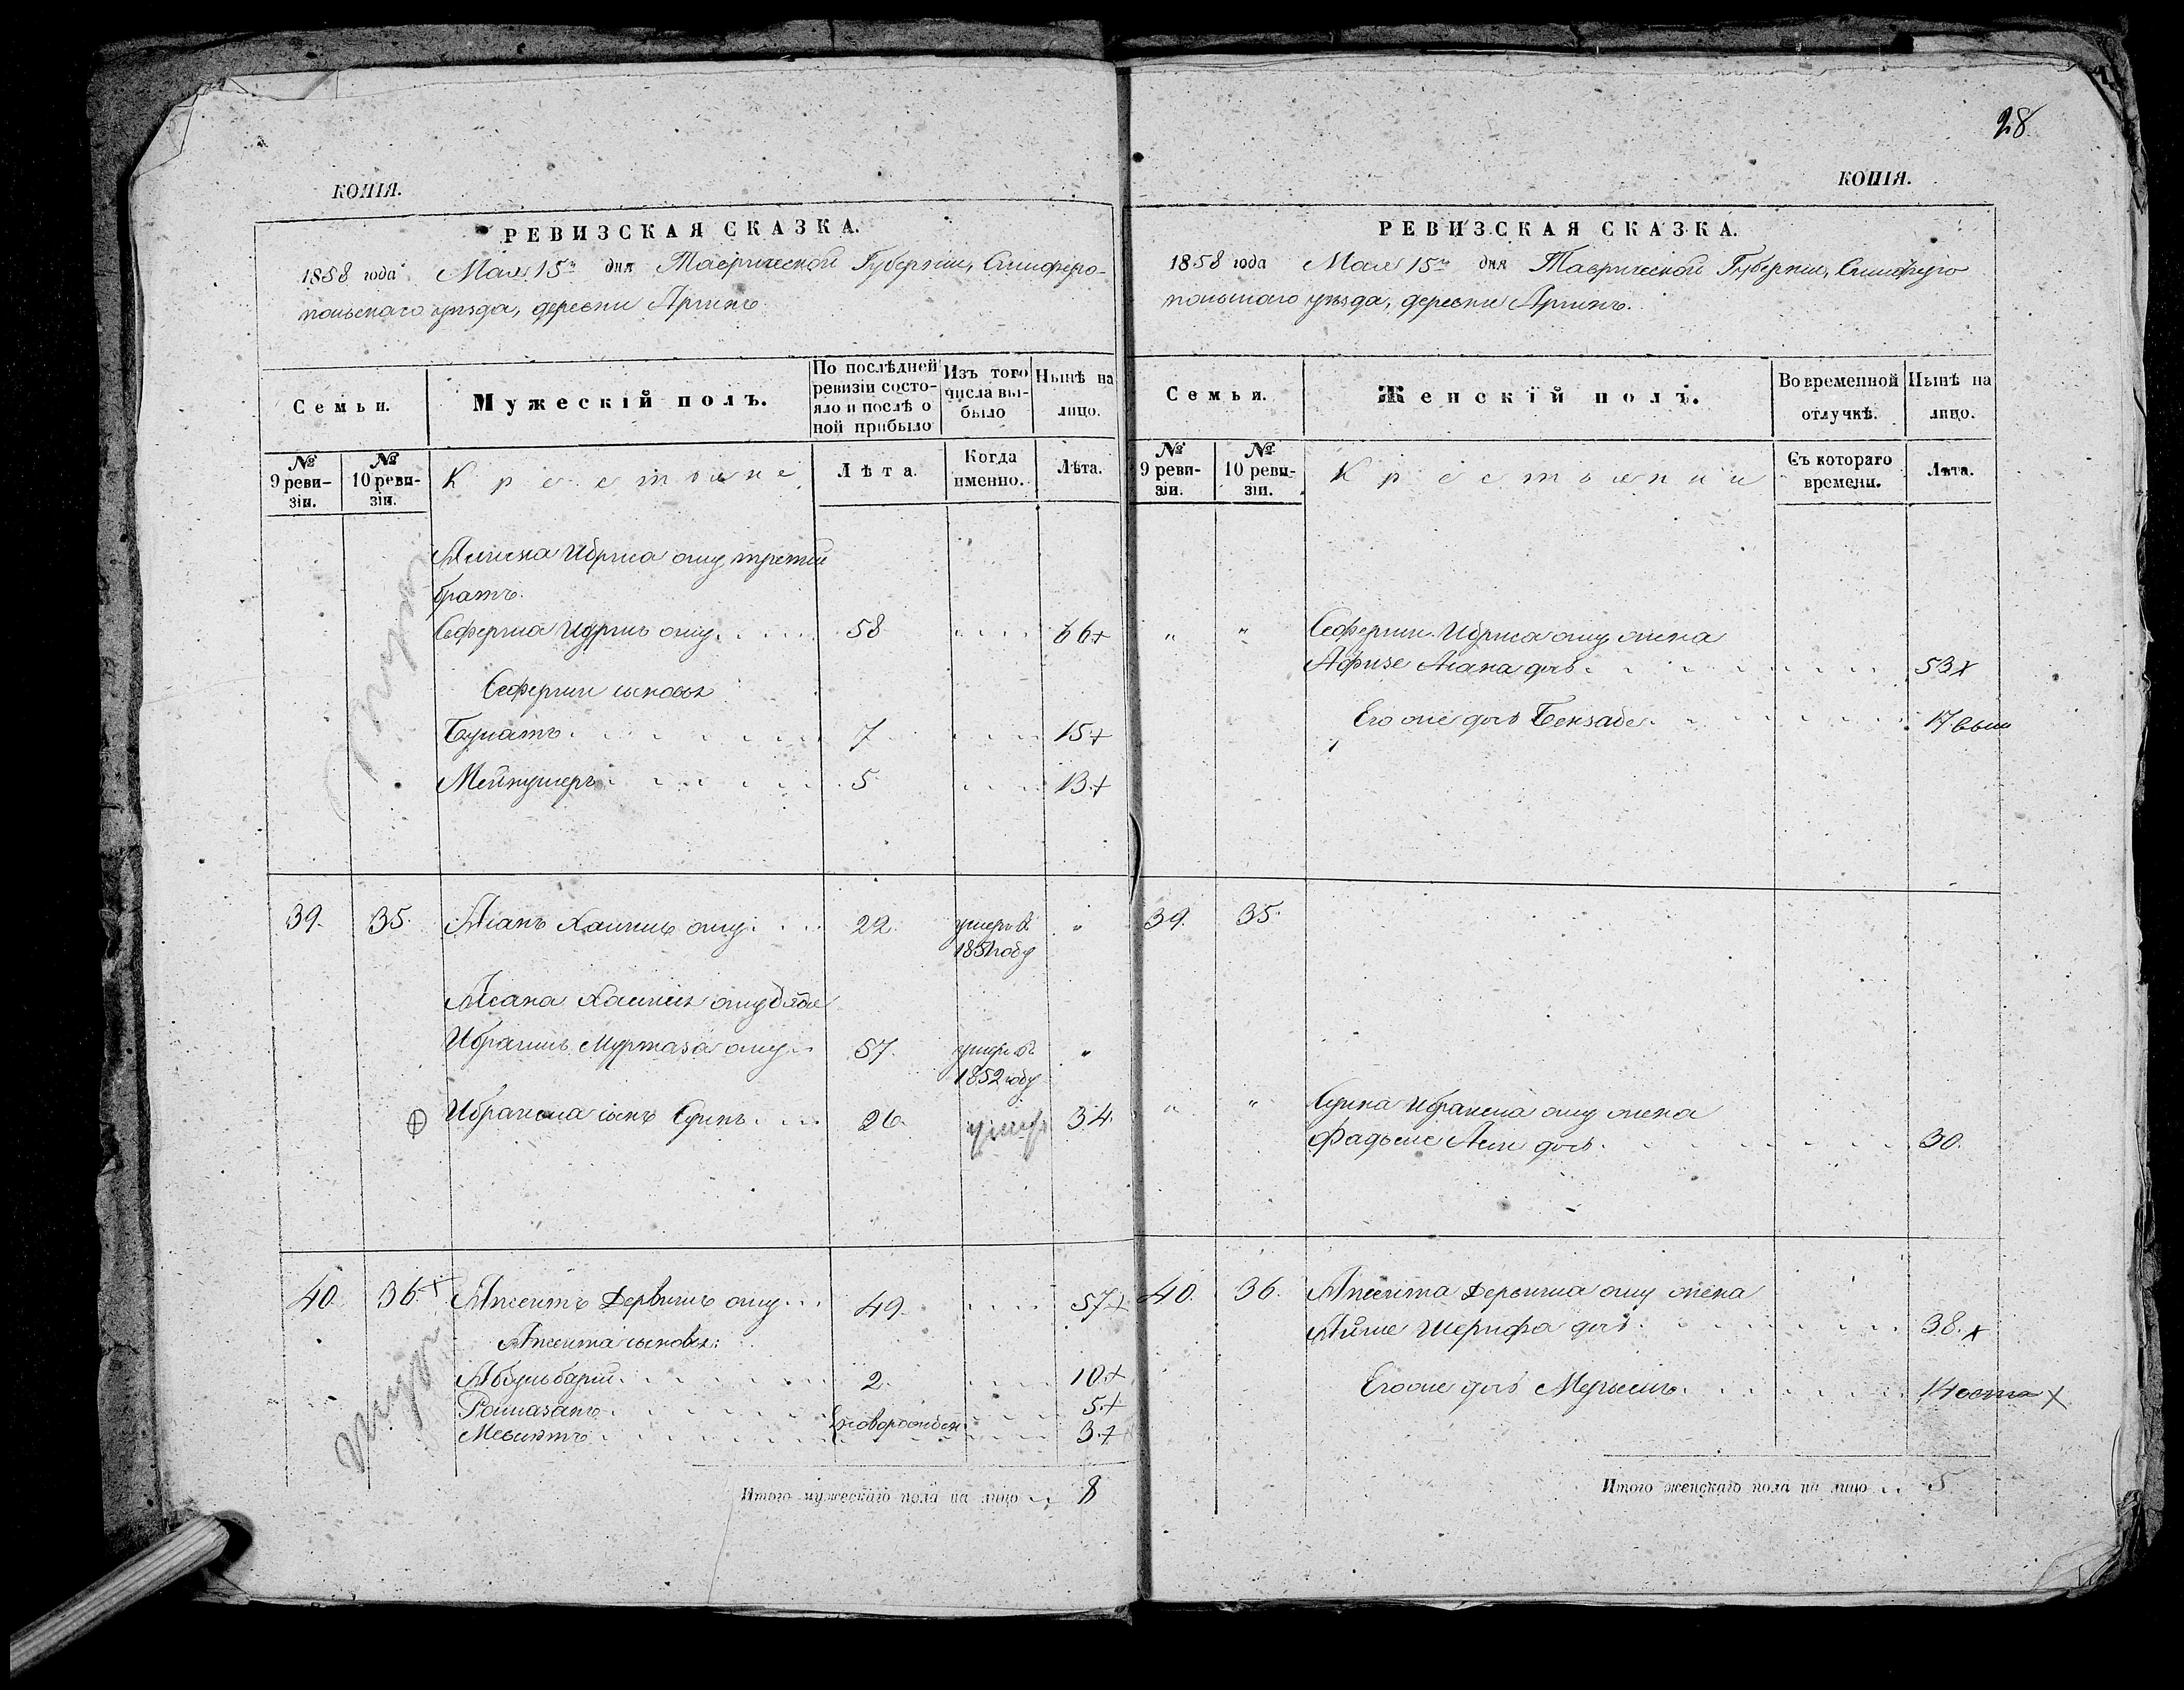 28
КОПІЯ.
РЕВИЗСКАЯ СКАЗКА.
1858 года Мая 15 дня Таврической Губерніи, Симферо-
польскаго уѣзда, деревни Аргинъ.
Семьи.
Мужескій полъ.
По послѣдней ревизіи состояло и послѣ оной прибыло
Изъ того числа выбыло
Нынѣ на лицо.
№ 9 ревизіи.
№ 10 ревизіи.
Крестьяне
Лѣта.
Когда именно.
Лѣта.
Идриса оглу третій
братъ.
Сеферша Идрисъ оглу 58 66+
Сеферши сыновья
Булатъ 7 15+
5 13+
39. 35. Асанъ Халиль оглу 22. умеръ въ "
1851 году
Асана Халиля оглу дядя
Ибрагимъ Муртаза оглу 57. умеръ въ "
1852 году
Ибрагима сынъ 26. умеръ 34.
40. 36.+ Дервишъ оглу 49. 57+
сыновья:
2. 10.+
Рамазанъ 5.+
новорожден
3.+
Итого мужескаго пола на лицо 8
КОПІЯ.
РЕВИЗСКАЯ СКАЗКА.
1858 года Мая 15 дня Таврической Губерніи, Симферо
польскаго уѣзда, деревни Аргинъ.
Семьи.
Женскій полъ.
Во временной отлучкѣ.
Нынѣ на лицо.
№ 9 ревизіи.
№ 10 ревизіи.
Крестьянки
Съ котораго времени.
Лѣта.
" " Сеферши Идриса оглу жена
Афизе Асана дочь 53+
Его же дочь Бекзаде 17
39. 35.
" " Ибрагима оглу жена
Фадьме Али дочь 30.
40. 36. Дервиша оглу жена
Айше Шерифа дочь 38.+
Его же дочь 14 +
Итого женскаго пола на лицо 5